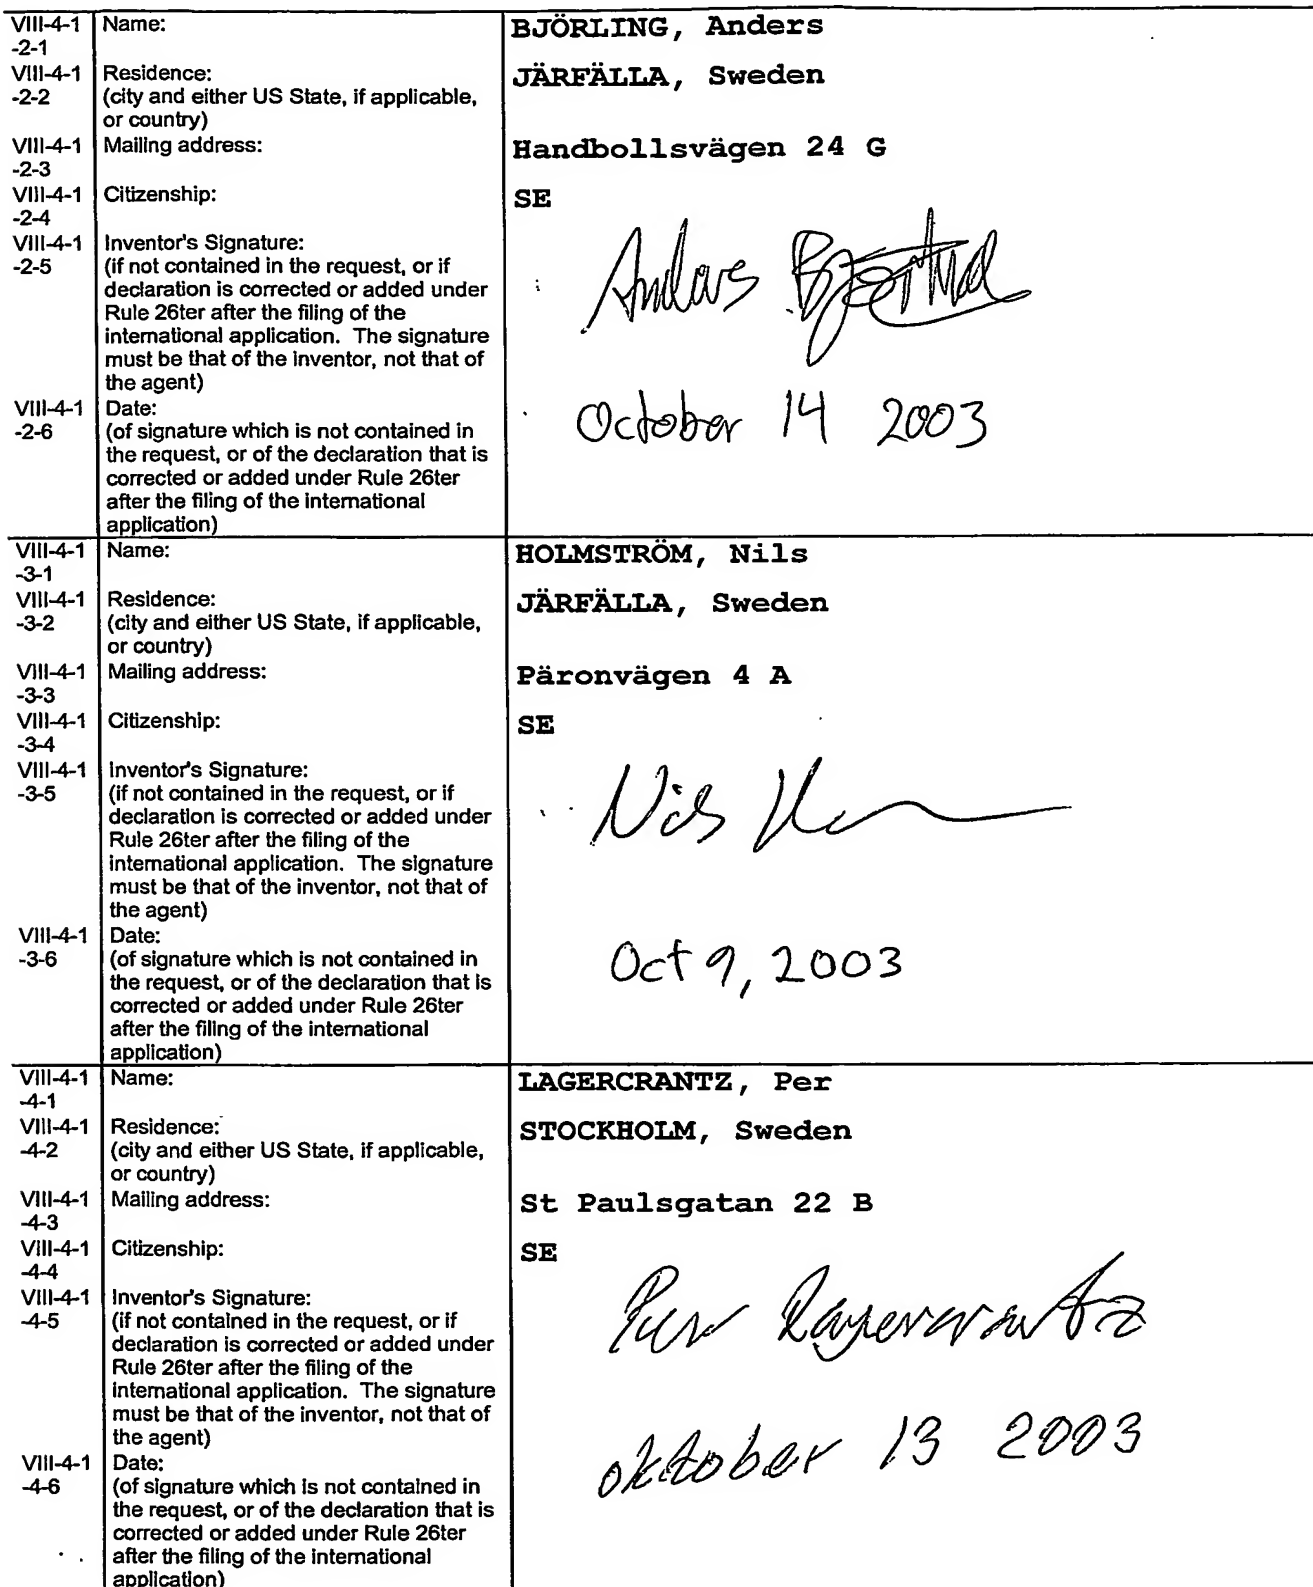 VIII-4-1 Name: BJÖRLING, Anders
-2-1
VIII-4-1 Residence: JÄRFÄLLA, Sweden
-2-2 (city and either US State, if applicable,
or country)
VIII-4-1 Mailing address: Handbollsvägen 24 G
-2-3
VIII-4-1 Citizenship: SE
-2-4
VIII-4-1 Inventor's Signature:
-2-5 (if not contained in the request, or if
declaration is corrected or added under
Rule 26ter after the filing of the
international application. The signature
must be that of the inventor, not that of
the agent)
Anders
VIII-4-1 Date: October 14 2003
-2-6 (of signature which is not contained in
the request, or of the declaration that is
corrected or added under Rule 26ter
after the filing of the international
application)
VIII-4-1 Name: HOLMSTRÖM, Nils
-3-1
VIII-4-1 Residence: JÄRFÄLLA, Sweden
-3-2 (city and either US State, if applicable,
or country)
VIII-4-1 Mailing address: Päronvägen 4 A
-3-3
VIII-4-1 Citizenship: SE
-3-4
VIII-4-1 Inventor's Signature:
-3-5 (if not contained in the request, or if
declaration is corrected or added under
Rule 26ter after the filing of the
international application. The signature
must be that of the inventor, not that of
the agent)
Nils
VIII-4-1 Date: Oct 9, 2003
-3-6 (of signature which is not contained in
the request, or of the declaration that is
corrected or added under Rule 26ter
after the filing of the international
application)
VIII-4-1 Name: LAGERCRANTZ, Per
-4-1
VIII-4-1 Residence: STOCKHOLM, Sweden
-4-2 (city and either US State, if applicable,
or country)
VIII-4-1 Mailing address: St Paulsgatan 22 B
-4-3
VIII-4-1 Citizenship: SE
-4-4
VIII-4-1 Inventor's Signature:
-4-5 (if not contained in the request, or if
declaration is corrected or added under
Rule 26ter after the filing of the
international application. The signature
must be that of the inventor, not that of
the agent)
Per Lagercrantz
VIII-4-1 Date: oktober 13 2003
-4-6 (of signature which is not contained in
the request, or of the declaration that is
corrected or added under Rule 26ter
after the filing of the international
application)